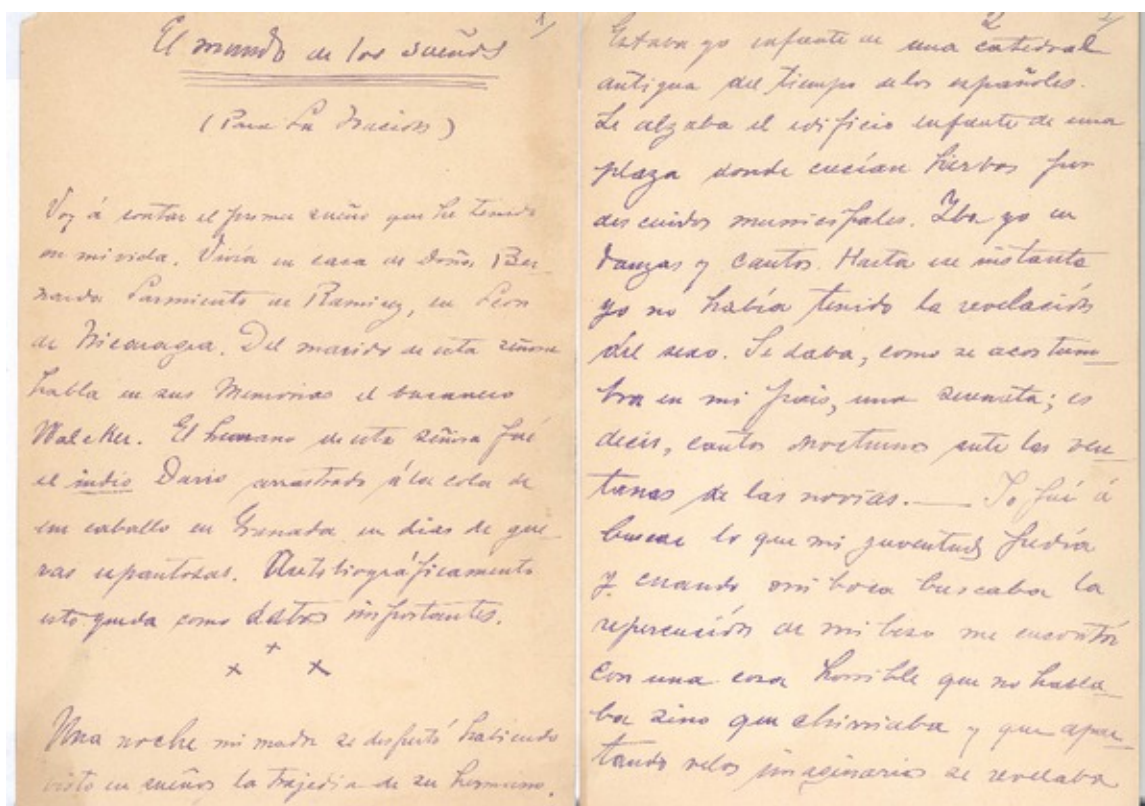 1/
El mundo de los sueños
(Para La Nacion)
Voy á contar el primer sueño que he tenido
en mi vida. Vivía en casa de doña Ber-
narda Sarmiento de Ramirez, en Leon
de Nicaragua. Del marido de esta señora
habla en sus Memorias el bucanero
Walcker. El hermano de esta señora fué
el indio Dario arrastrado á la cola de
un caballo en Granada en dias de gue
rras espantosas. Autobiográficamente
esto queda como datos importantes.
x + x
Una noche mi madre se despertó habiendo
visto en sueños la tragedia de su hermano.
2
Estaba yo enfrente de una catedral
antigua del tiempo de los españoles.
Se alzaba el edificio enfrente de una
plaza donde crecían hierbas por
descuidos municipales. Iba yo en
danzas y cantos. Hasta ese instante
yo no había tenido la revelación
del sexo. Se daba, como se acostum-
bra en mi país, una serenata; es
decir, cantos nocturnos ante las ven-
tanas de las novias. — Yo fuí á
buscar lo que mi juventud pedía
y cuando mi boca buscaba la
repercusión de mi beso me encontré
con una cosa horrible que no habla-
ba sino que chirriaba y que apar-
tando velos imaginarios se revelaba